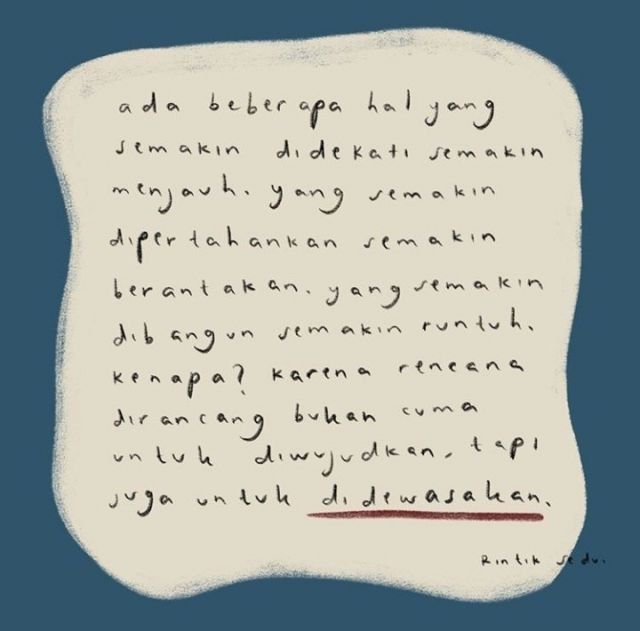 ada beberapa hal yang
semakin didekati semakin
menjauh. yang semakin
dipertahankan semakin
berantakan. yang semakin
dibangun semakin runtuh.
kenapa? karena rencana
dirancang bukan cuma
untuk diwujudkan. tapi
juga untuk didewasakan.
Rintik sedu.